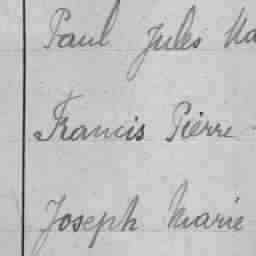 Paul Jules
Francis Pierre
Joseph Marie